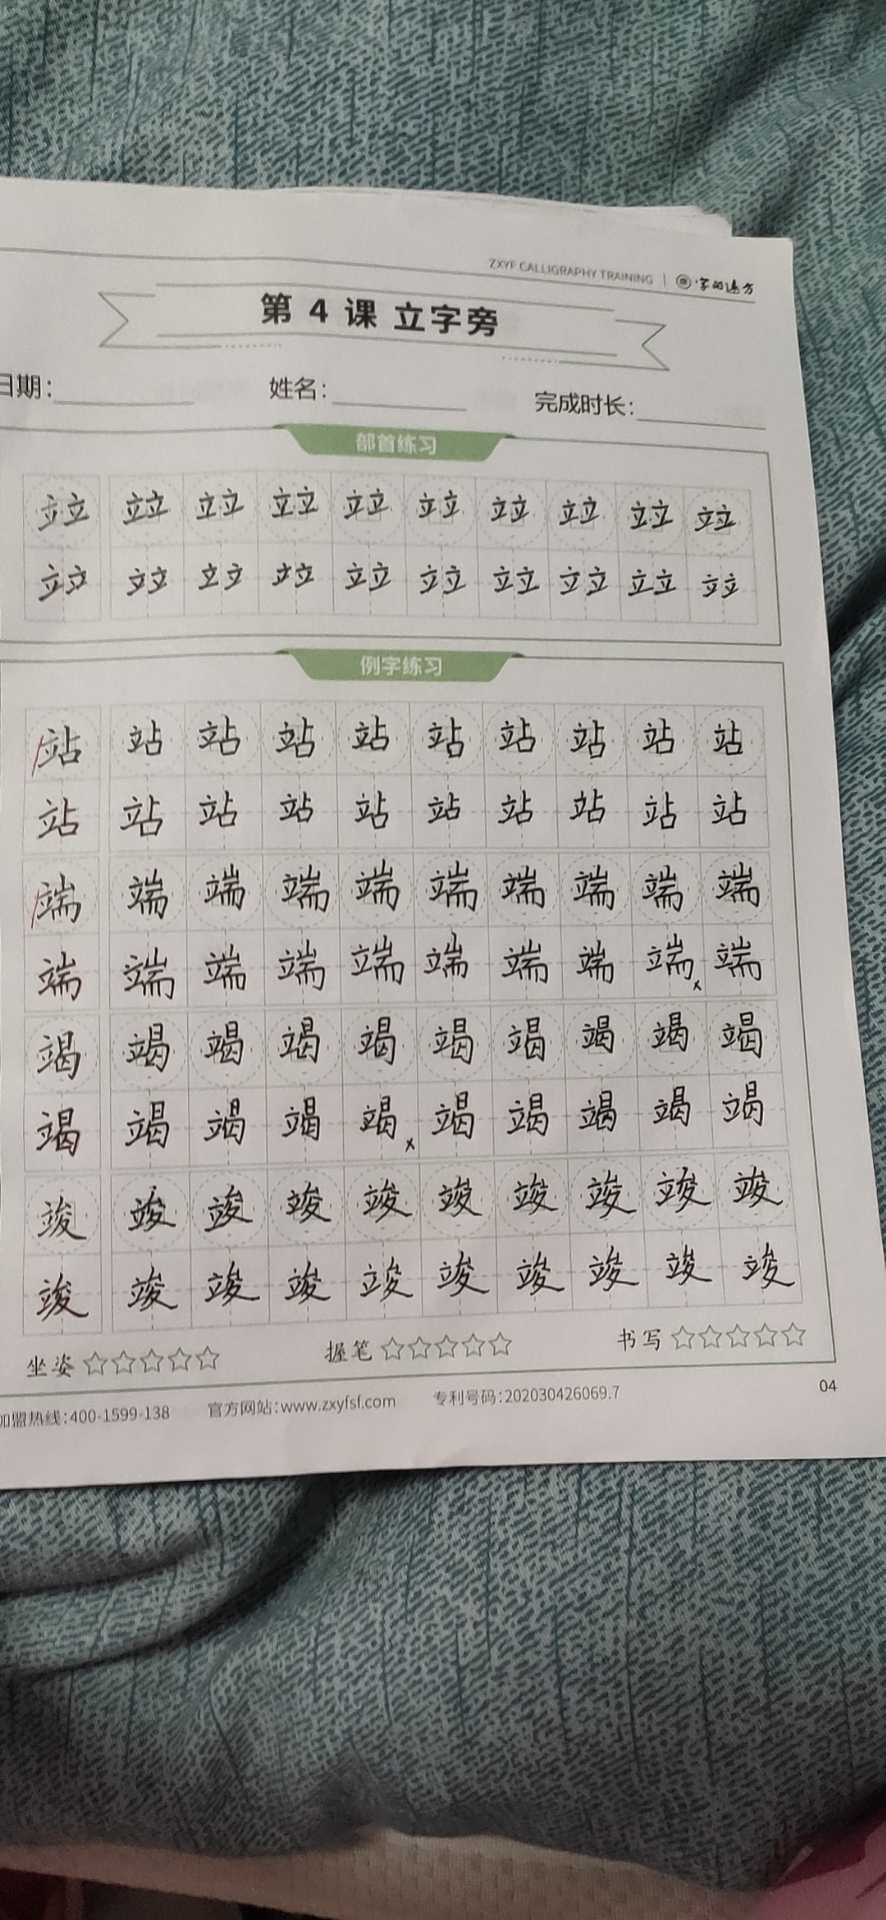 ZXYF CALLIGRAPHY TRAINING | 字的远方
第 4 课 立字旁
日期: 姓名: 完成时长:
部首练习
立立 立立 立立 立立 立立 立立 立立 立立 立立 立立
立立 立立 立立 立立 立立 立立 立立 立立 立立 立立
例字练习
站 站 站 站 站 站 站 站 站 站
站 站 站 站 站 站 站 站 站 站
端 端 端 端 端 端 端 端 端 端
端 端 端 端 端 端 端 端 端 x 端
竭 竭 竭 竭 竭 竭 竭 竭 竭 竭
竭 竭 竭 竭 竭 x 竭 竭 竭 竭 竭
竣 竣 竣 竣 竣 竣 竣 竣 竣 竣
竣 竣 竣 竣 竣 竣 竣 竣 竣 竣
坐姿☆☆☆☆☆ 握笔☆☆☆☆☆ 书写☆☆☆☆☆
加盟热线:400-1599-138 官方网站:www.zxyfsf.com 专利号码:202030426069.7 04